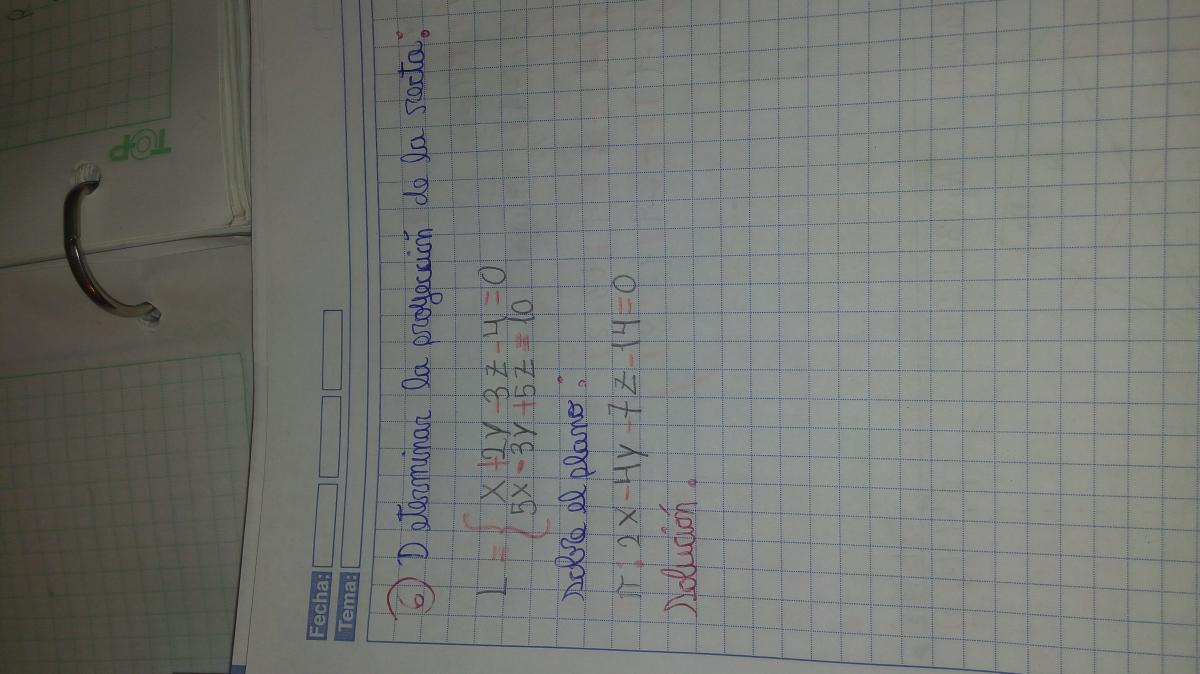 TOP
Fecha:
Tema:
6) Determinar la proyección de la recta:
L = { x + 2y - 3z - 4 = 0
5x - 3y + 5z = 10
sobre el plano:
π: 2x - 4y - 7z - 14 = 0
Solución.